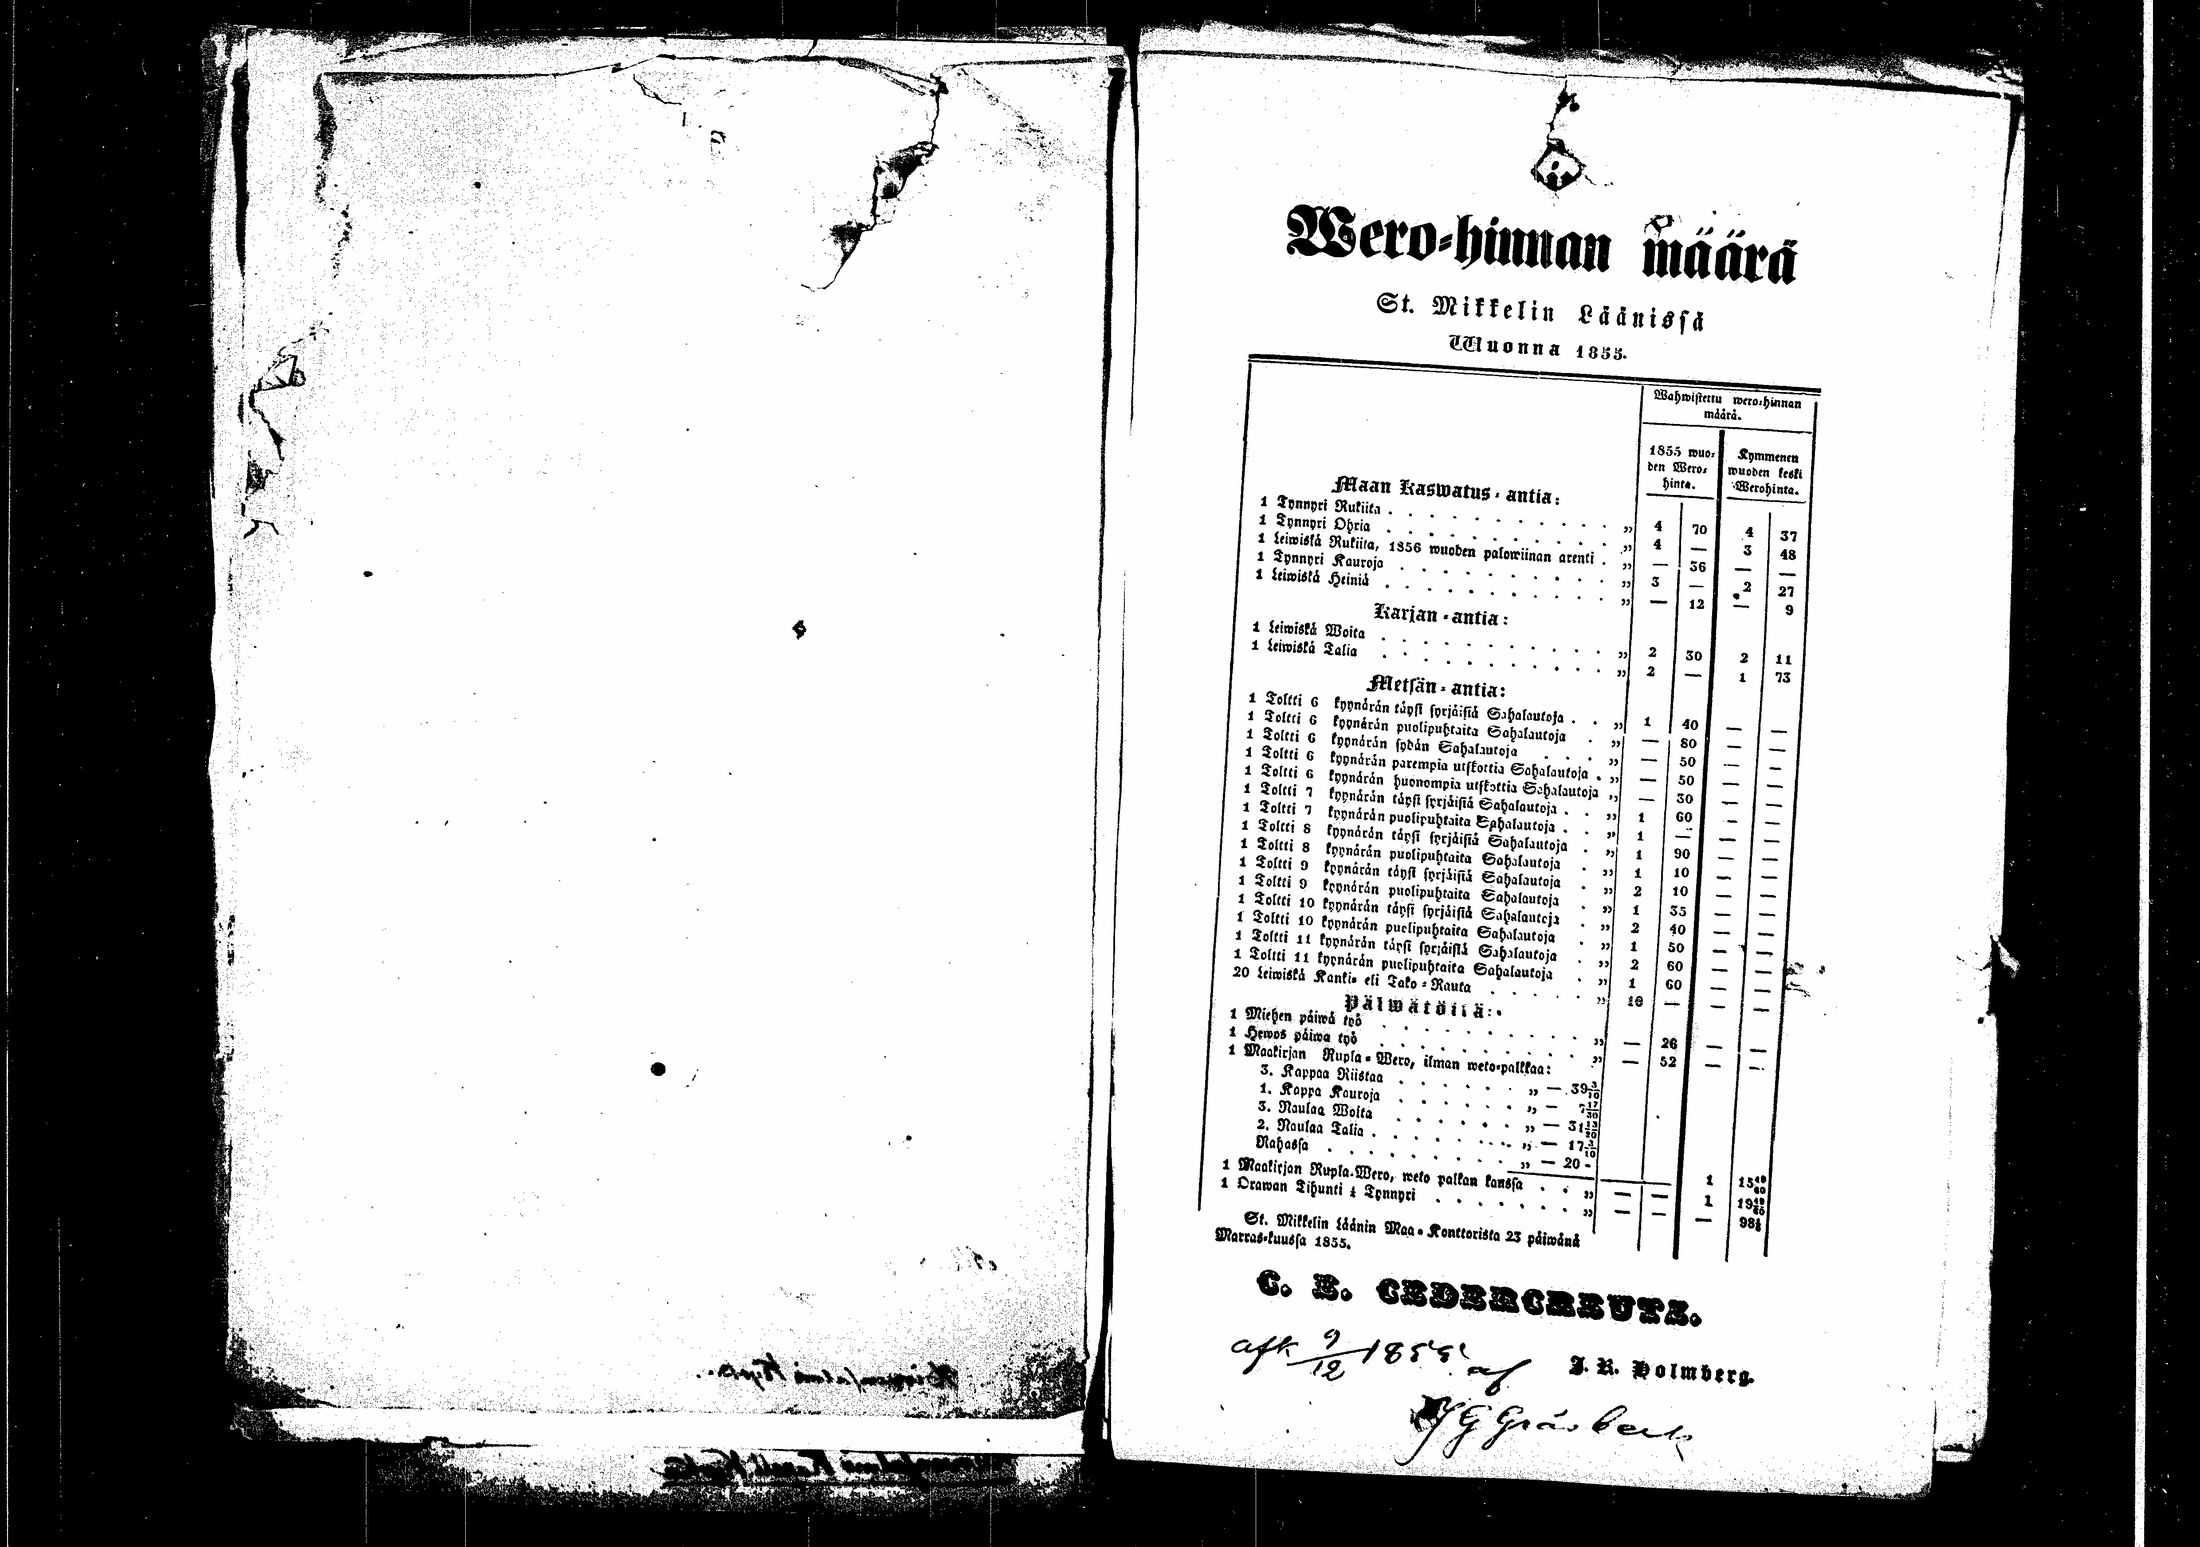 Wero-hinnan määrä
St. Mikkelin Läänissä
Wuonna 1855.
Wahwistettu wero-hinnan
määrä.
1855 wuo-
den Wero-
hinta.
Kymmenen
wuoden keski
Werohinta.
Maan kaswatus-antia:
1 Tynnyri Rukiita . . . „ 4 70 4 37
1 Tynnyri Ohria . . . „ 4 — 3 48
1 Leiwiskä Rukiita, 1856 wuoden palowiinan arenti . „ — 36 — —
1 Tynnyri Kauroja . . . „ 3 — 2 27
1 Leiwiskä Heiniä . . . „ — 12 — 9
Karjan-antia:
1 Leiwiskä Woita . . . „ 2 30 2 11
1 Leiwiskä Talia . . . „ 2 — 1 73
Metsän-antia:
1 Toltti 6 kyynärän täysi syrjäisiä Sahalautoja . . „ 1 40 — —
1 Toltti 6 kyynärän puolipuhtaita Sahalautoja . „ — 80 — —
1 Toltti 6 kyynärän sydän Sahalautoja . . . „ — 50 — —
1 Toltti 6 kyynärän parempia utskottia Sahalautoja . „ — 50 — —
1 Toltti 6 kyynärän huonompia utskottia Sahalautoja „ — 30 — —
1 Toltti 7 kyynärän täysi syrjäisiä Sahalautoja . . „ 1 60 — —
1 Toltti 7 kyynärän puolipuhtaita Sahalautoja . . „ 1 — — —
1 Toltti 8 kyynärän täysi syrjäisiä Sahalautoja . „ 1 90 — —
1 Toltti 8 kyynärän puolipuhtaita Sahalautoja . „ 1 10 — —
1 Toltti 9 kyynärän täysi syrjäisiä Sahalautoja . „ 2 10 — —
1 Toltti 9 kyynärän puolipuhtaita Sahalautoja . „ 1 35 — —
1 Toltti 10 kyynärän täysi syrjäisiä Sahalautoja . „ 2 40 — —
1 Toltti 10 kyynärän puolipuhtaita Sahalautoja . „ 1 50 — —
1 Toltti 11 kyynärän täysi syrjäisiä Sahalautoja . „ 2 60 — —
1 Toltti 11 kyynärän puolipuhtaita Sahalautoja . „ 1 60 — —
20 Leiwiskä Kanki- eli Tako-Rauta . . . „ 10 — — —
Päiwätöitä:
1 Miehen päiwä työ . . . „ — 26 — —
1 Hewos päiwa työ . . . „ — 52 — —
1 Maakirjan Rupla-Wero, ilman weto-palkkaa:
3. Kappaa Riistaa . . . „ — 39 3/10
1. Kappa Kauroja . . . „ — 7 17/30
3. Naulaa Woita . . . „ — 31 13/20
2. Naulaa Talia . . . „ — 17 3/10
Rahassa . . . „ — 20 - 1 15 49/60
1 Maakirjan Rupla-Wero, weto palkan kanssa . . „ — — 1 19 49/60
1 Orawan Tihunti ¼ Tynnyri . . . „ — — — 98⅛
St. Mikkelin Läänin Maa-Konttorista 23 päiwänä
Marras-kuussa 1855.
C. E. CEDERCREUTZ.
J. R. Holmberg.
afk 9/12 1855 af
J G Gråsbeck